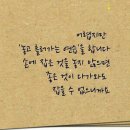 어렵지만
'놓고 흘러가는 연습'을 합니다
손에 잡은 것을 놓지 않으면
좋은 것이 다가와도
잡을 수 없으니까요